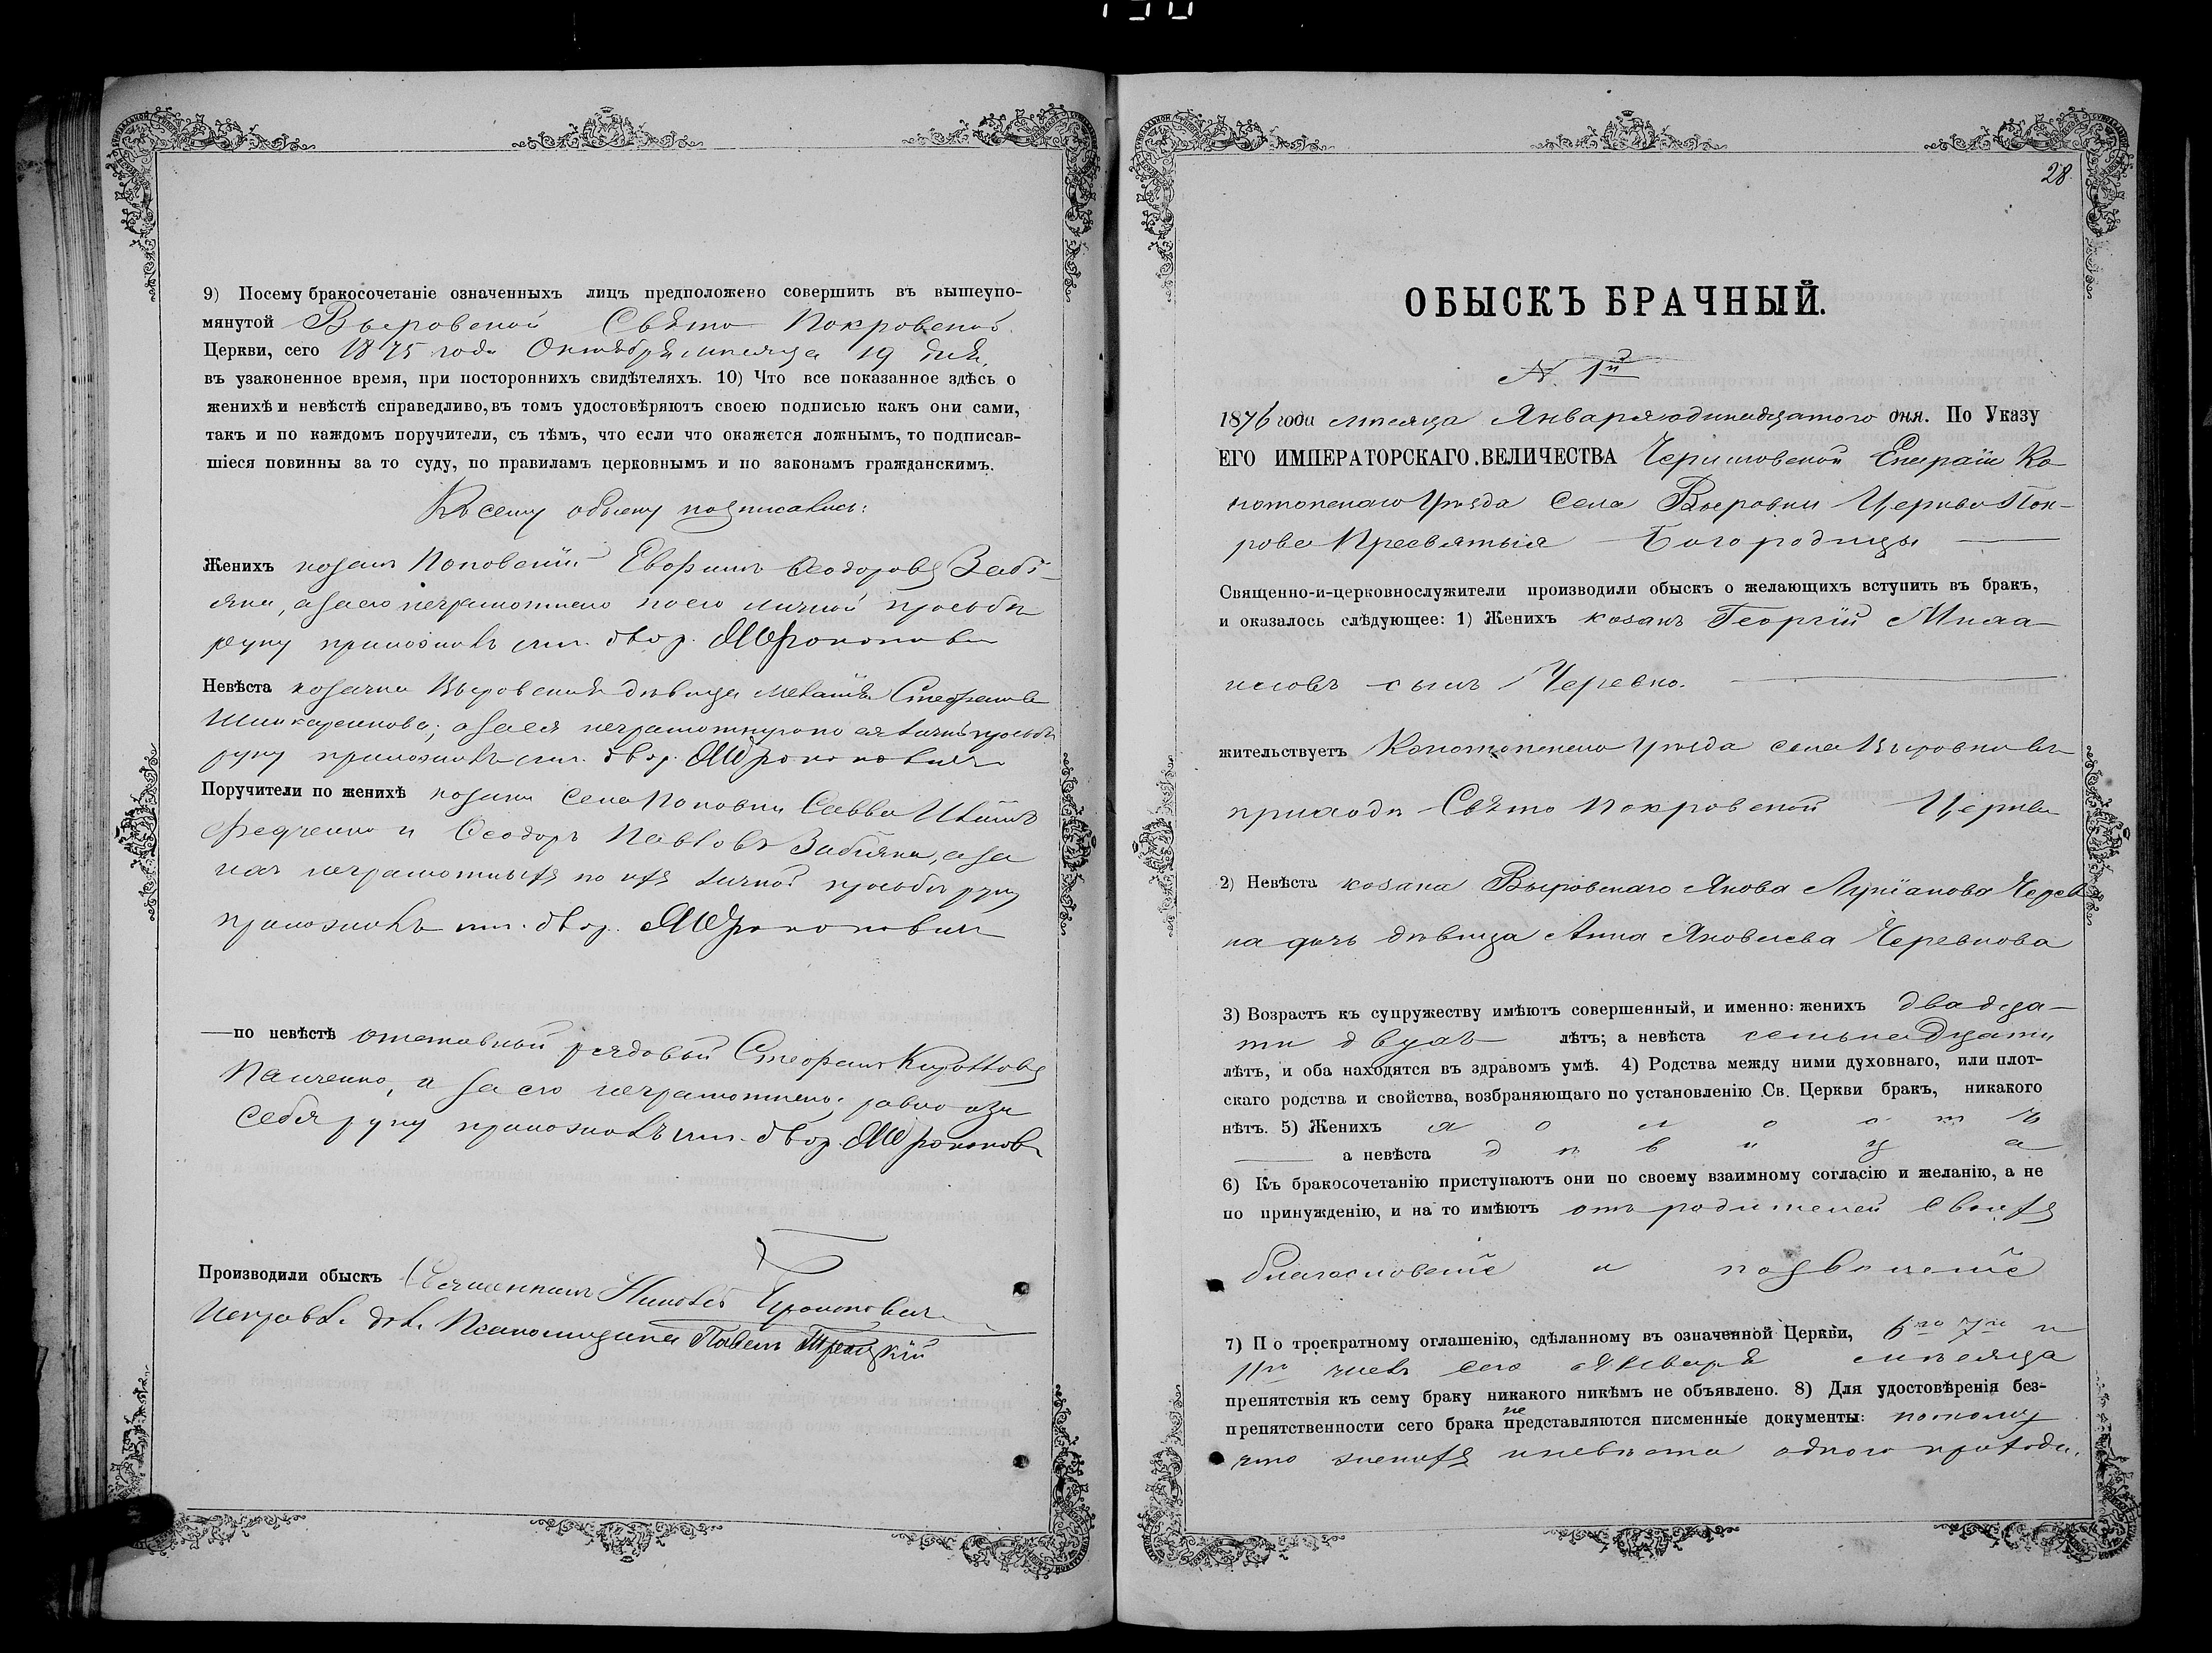 9) Посему бракосочетаніе означенныхъ лицъ предположено совершить въ вышеупо-
мянутой Выровской Свято Покровской
Церкви, сего 1875 года Октября мѣсяца 19 дня,
въ узаконенное время, при постороннихъ свидѣтеляхъ. 10) Что все показанное здѣсь о
женихѣ и невѣстѣ справедливо, въ томъ удостовѣряютъ своею подписью какъ они сами,
такъ и по каждомъ поручители, съ тѣмъ, что если что окажется ложнымъ, то подписав-
шіеся повинны за то суду, по правиламъ церковнымъ и по законамъ гражданскимъ.
Къ сему обыску подписались:
Женихъ козакъ Поповскій Ѳеодоровъ Забі-
яка, а за его неграмотного по его личной просьбѣ
руку приложилъ двор.
Невѣста козачка Выровская дѣвица Стефанова
а за ея неграмотную по ея личной просьбѣ
руку приложилъ двор.
Поручители по женихѣ козаки села Поповки Савва
Федченко и Ѳеодоръ Павловъ Забіяка, а за
ихъ неграмотныхъ по ихъ личной просьбѣ руку
приложилъ двор.
—по невѣстѣ отставной рядовой Стефанъ
Панченко, а за его неграмотного, равно и за
себя руку приложилъ двор.
Производили обыскъ Священникъ
Исправл. дол. Псаломщика Павелъ Троицкій
28.
ОБЫСКЪ БРАЧНЫЙ.
N. 1й
1876 года мѣсяца Января одинадцатого дня. По Указу
ЕГО ИМПЕРАТОРСКАГО ВЕЛИЧЕСТВА Черниговской Епархіи Ко-
нотопскаго Уѣзда Села Выровки Церкви Пок-
рова Пресвятыя Богородицы
Священно-и-церковнослужители производили обыскъ о желающихъ вступить въ бракъ,
и оказалось слѣдующее: 1) Женихъ козакъ Георгій Миха-
иловъ сынъ Черевко.
жительствуетъ Конотопскаго Уѣзда села Выровки въ
приходѣ Свято Покровской Церкви
2) Невѣста козака Выровскаго Якова Лукіанова Черев-
ка дочь дѣвица Анна Яковлева Черевкова
3) Возрастъ къ супружеству имѣютъ совершенный, и именно: женихъ двадца-
ти двухъ лѣтъ; а невѣста семьнадцати
лѣтъ, и оба находятся въ здравомъ умѣ. 4) Родства между ними духовнаго, или плот-
скаго родства и свойства, возбраняющаго по установленію Св. Церкви бракъ, никакого
нѣтъ. 5) Женихъ холостъ
а невѣста дѣвица
6) Къ бракосочетанію приступаютъ они по своему взаимному согласію и желанію, а не
по принужденію, и на то имѣютъ отъ родителей своихъ
благословеніе и позволеніе
7) По троекратному оглашенію, сдѣланному въ означенной Церкви, 6го 7го и
11го числъ сего Января мѣсяца
препятствія къ сему браку никакого никѣмъ не объявлено. 8) Для удостовѣренія без-
препятственности сего брака не представляются писменные документы: потому
что женихъ и невѣста одного прихода.